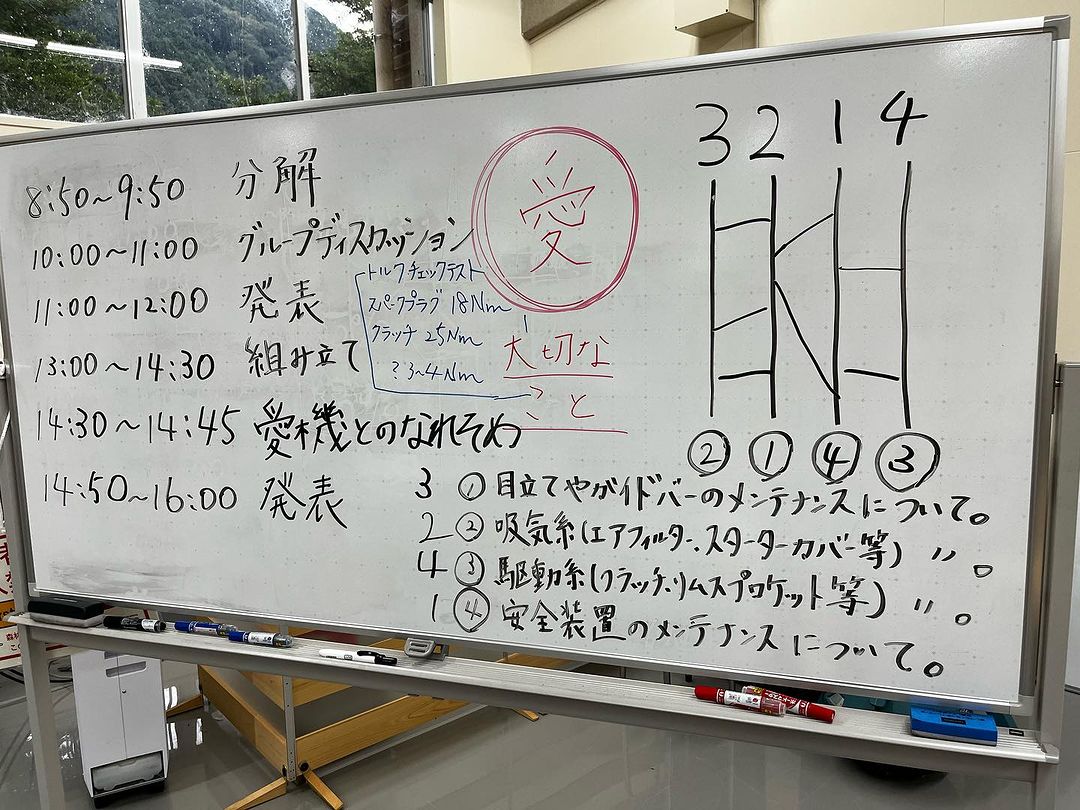 8:50~9:50 分解
10:00~11:00 グループディスカッション
11:00~12:00 発表
13:00~14:30 組み立て
14:30~14:45 愛機とのなれそめ
14:50~16:00 発表
トルクチェックテスト
スパークプラグ 18Nm
クラッチ 25Nm
? 3~4Nm
愛
大切な
こと
3 2 1 4
② ① ④ ③
3 ① 目立てやガイドバーのメンテナンスについて。
2 ② 吸気系(エアフィルター、スターターカバー等) 〃 。
4 ③ 駆動系(クラッチ、リムスプロケット等) 〃 。
1 ④ 安全装置のメンテナンスについて。